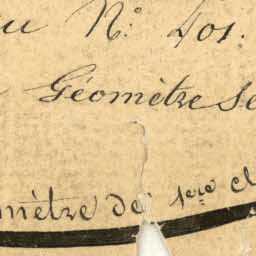 u N.º 401.
Géomètre Se
mètre de 1ere cl